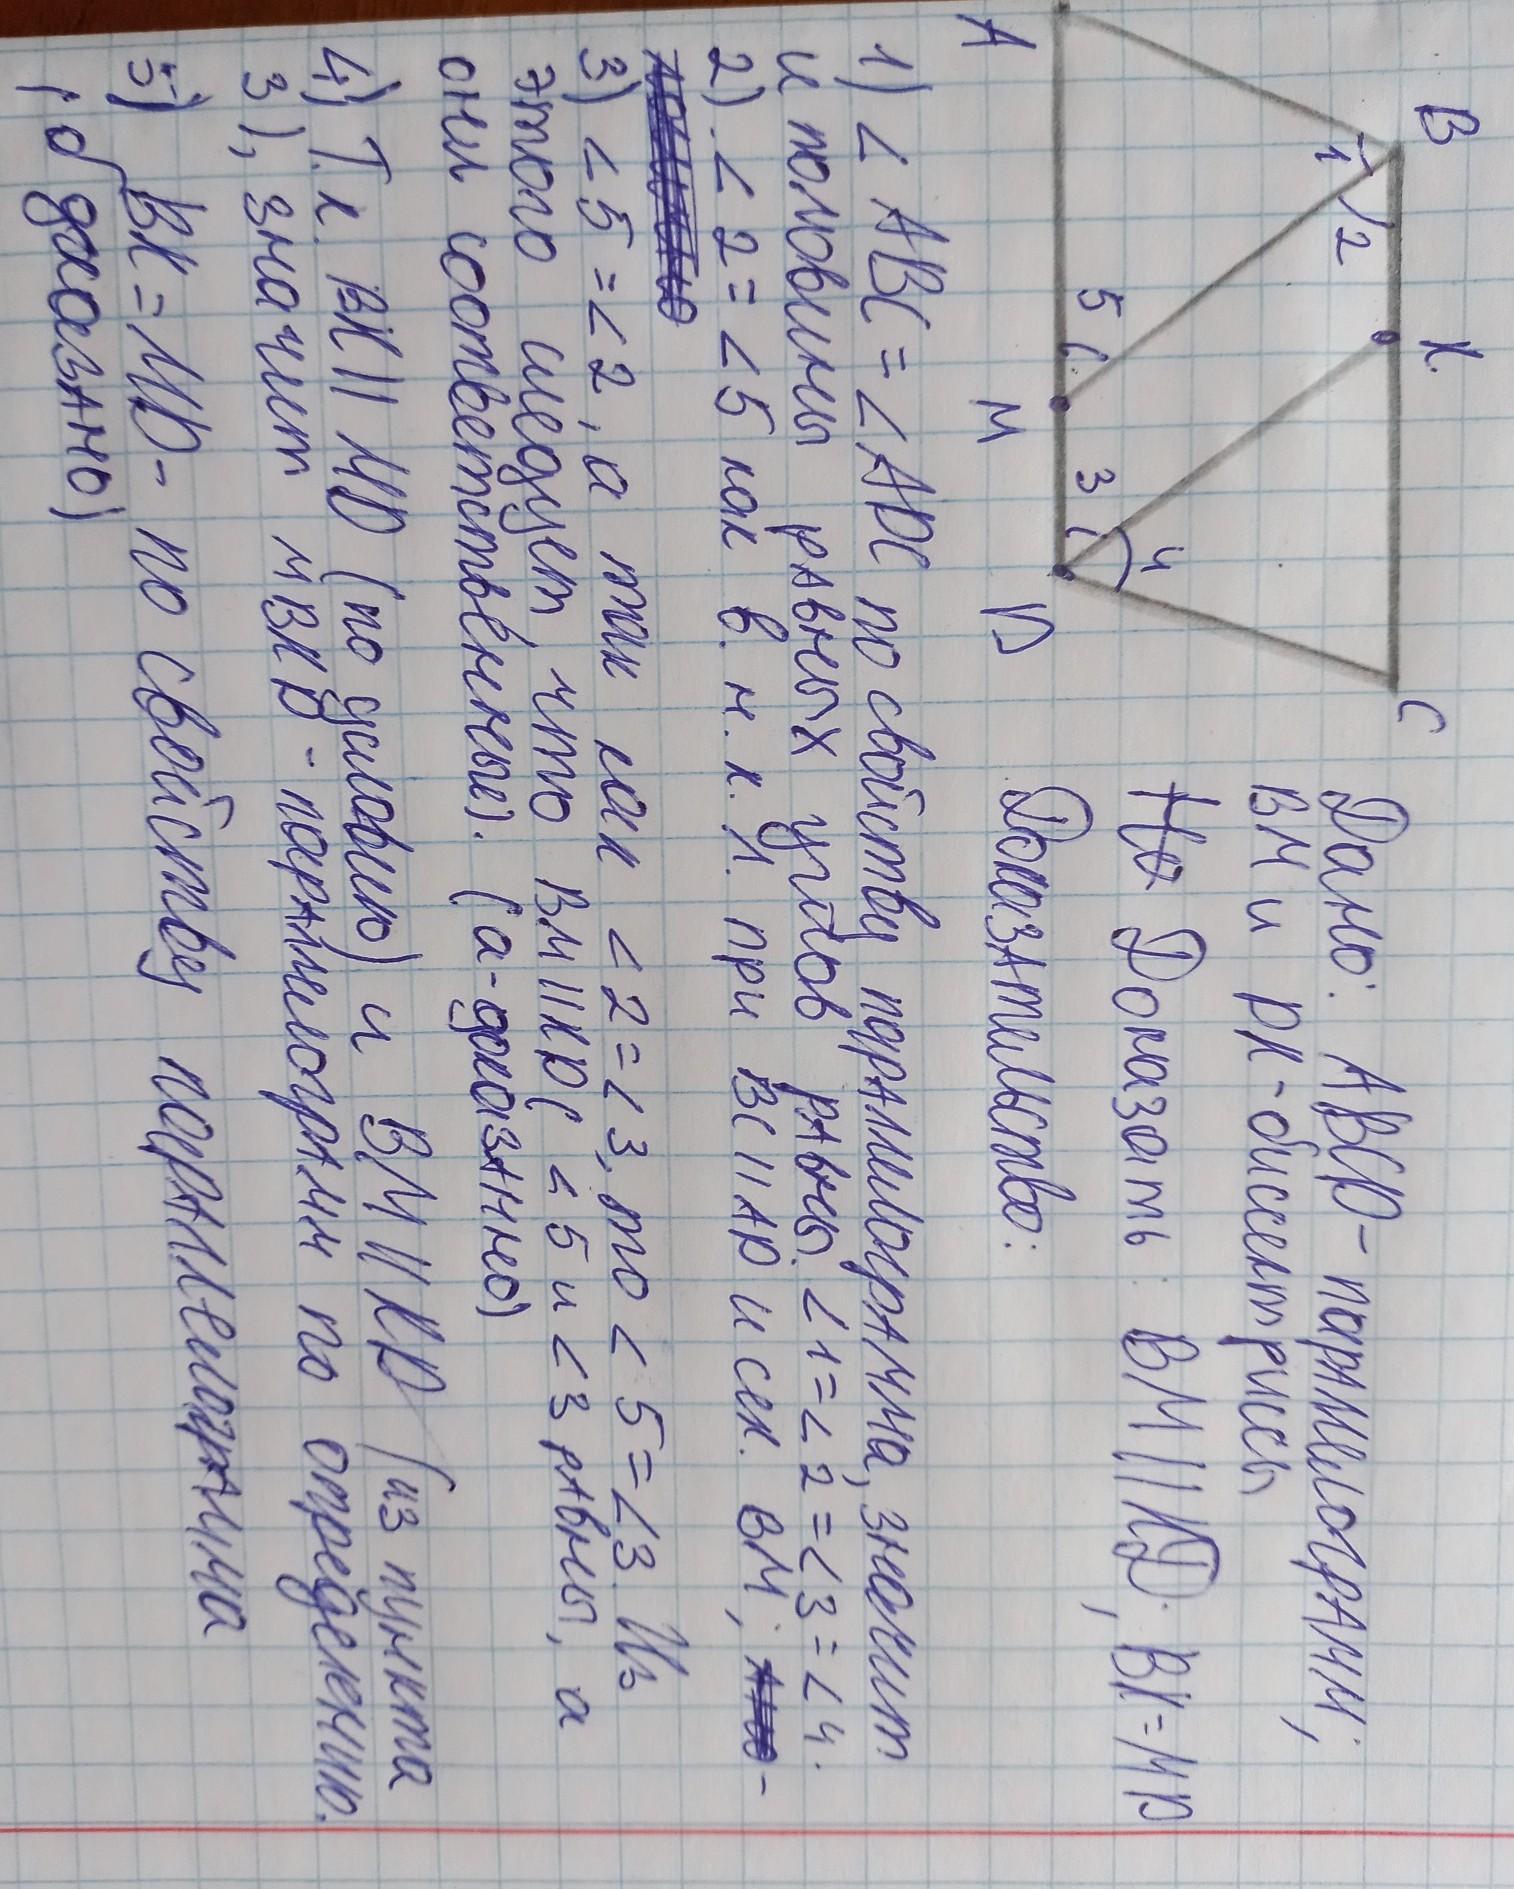 B K C
1 2
4
5 3
A M D
Дано: ABCD - параллелограмм;
BM и DK - биссектрисы
Доказать: BM || KD; BK = MD
Доказательство:
1) ∠ABC = ∠ADC по свойству параллелограмма, значит
и половины равных углов равны. ∠1 = ∠2 = ∠3 = ∠4.
2) ∠2 = ∠5 как в. н. к. Л. при BC || AD и сек. BM;
3) ∠5 = ∠2, а так как ∠2 = ∠3, то ∠5 = ∠3. Из
этого следует, что BM || KD ( ∠5 и ∠3 равны, а
они соответственные). (а - доказано)
4) Т.к. BK || MD (по условию) и BM || KD (из пункта
3), значит MBKD - параллелограмм по определению.
5) BK = MD - по свойству параллелограмма
(б доказано)